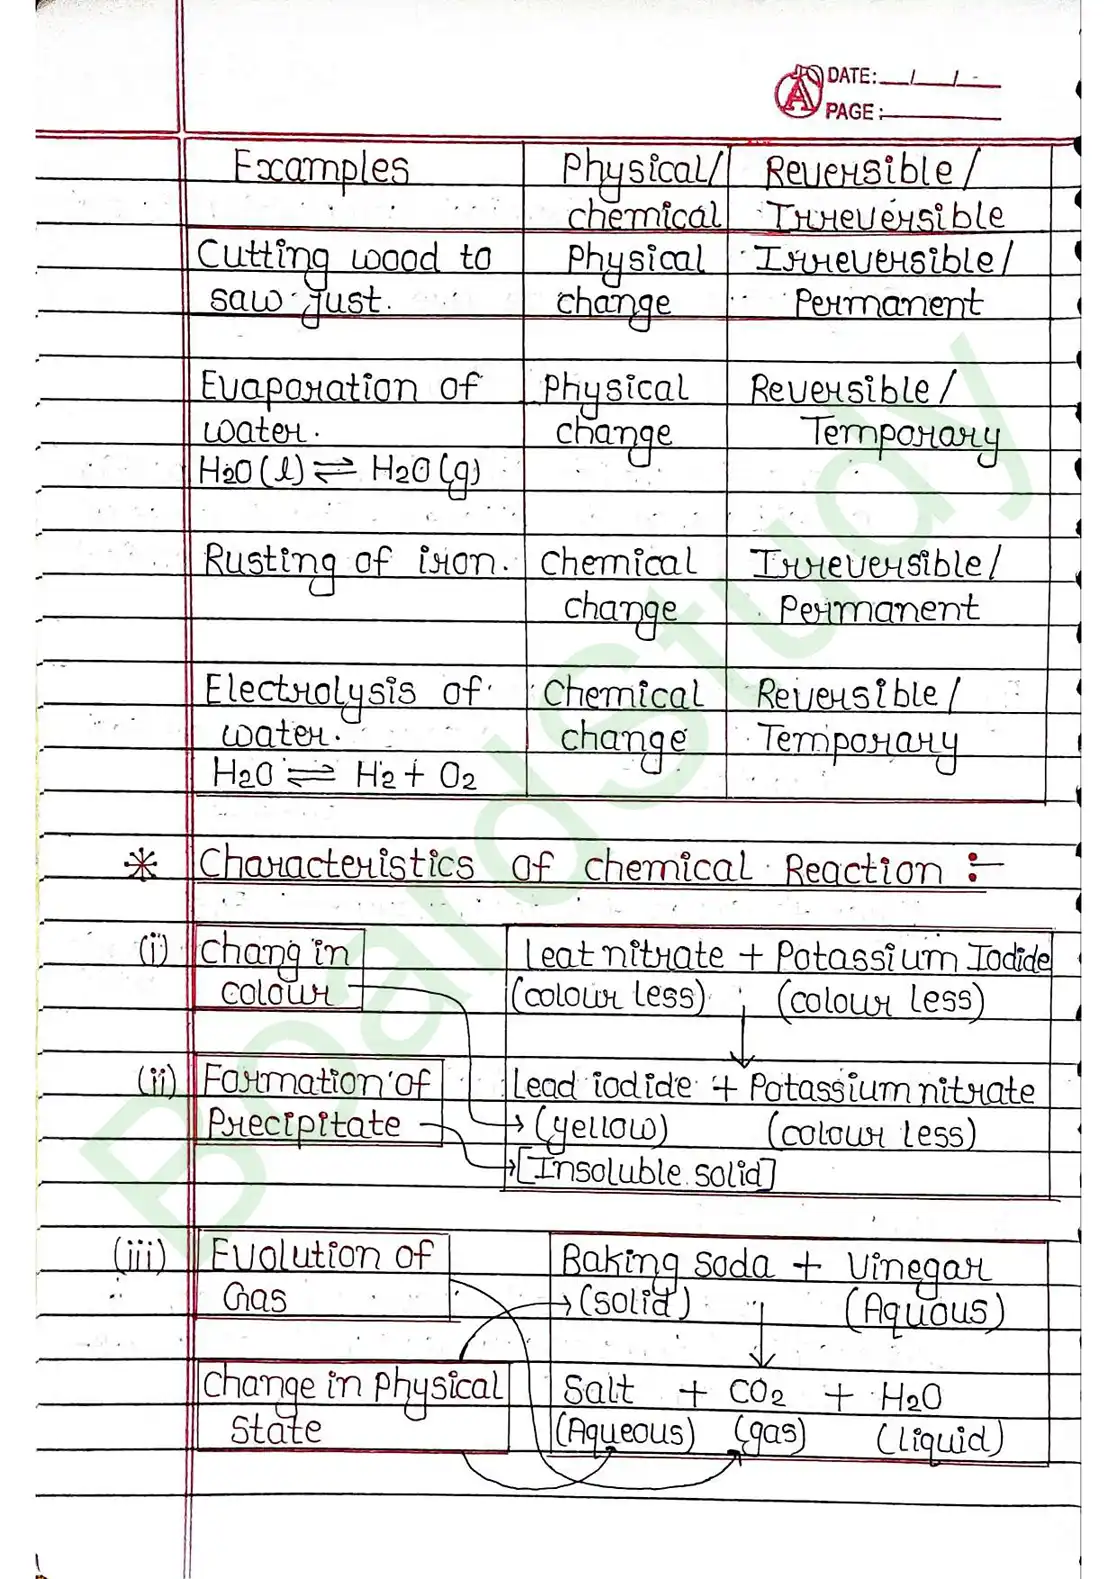 DATE: / /
PAGE:
Examples Physical/ Reversible/
chemical Irreversible
Cutting wood to Physical Irreversible/
saw just. change Permanent
Evaporation of Physical Reversible/
water. change Temporary
H2O(l) ⇌ H2O(g)
Rusting of iron. Chemical Irreversible/
change Permanent
Electrolysis of Chemical Reversible/
water. change Temporary
H2O ⇌ H2 + O2
* Characteristics of chemical Reaction :-
(i) Chang in Leat nitrate + Potassium Iodide
colour (colour less) (colour less)
(ii) Formation of Lead iodide + Potassium nitrate
Precipitate → (yellow) (colour less)
→ [Insoluble solid]
(iii) Evolution of Baking soda + Vinegar
Gas → (solid) (Aquous)
Change in Physical Salt + CO2 + H2O
State (Aqueous) (gas) (liquid)
BoardStudy